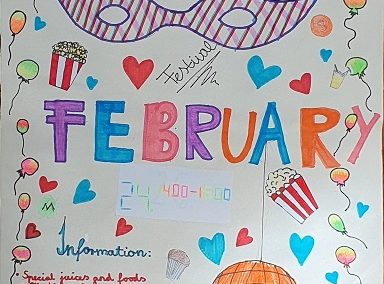 Festival
FEBRUARY
24 14:00-18:00
Information:
• Special juices and foods